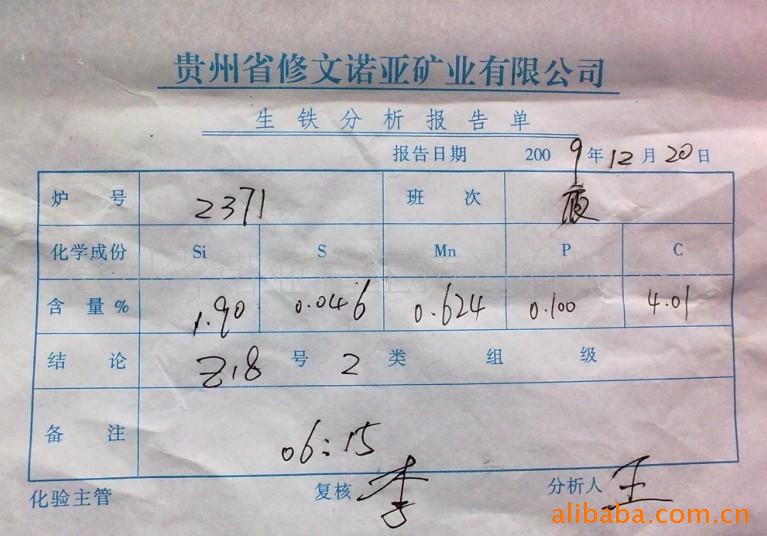 贵州省修文诺亚矿业有限公司
生铁分析报告单
报告日期 2009年12月20日
炉号 2371 班次 夜
化学成份 Si S Mn P C
含量% 1.90 0.046 0.624 0.100 4.01
结论 Z18号 2类 组 级
备注 06:15
化验主管 复核 李 分析人 王
alibaba.com.cn